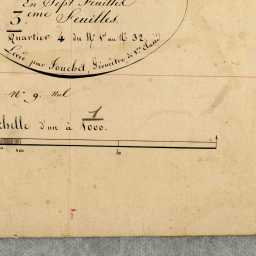 En Sept Feuilles
5
eme Feuilles.
Quartier 4 du N.º 1.er au N.º 32.
Levé par Fouchet, Géomètre de 1.re classe
Nº 9. Nol
chelle d'un à 1
1000.